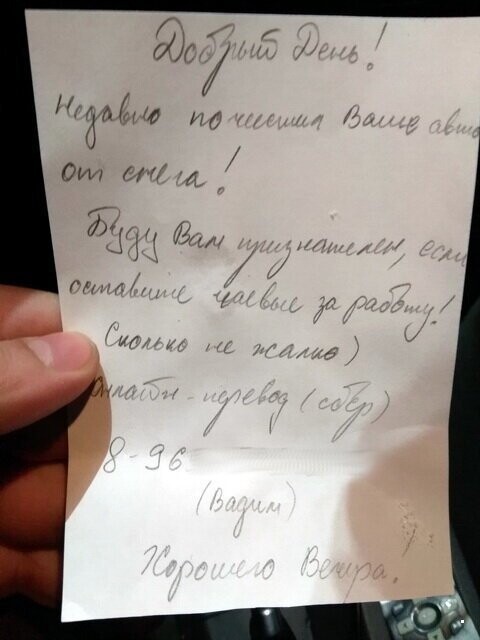 Добрый День!
Недавно почистил Ваше авто
от снега!
Буду Вам признателен, если
оставите чаевые за работу!
Сколько не жалко)
онлайн-перевод (сбер)
8-96
(Вадим)
Хорошего Вечера!